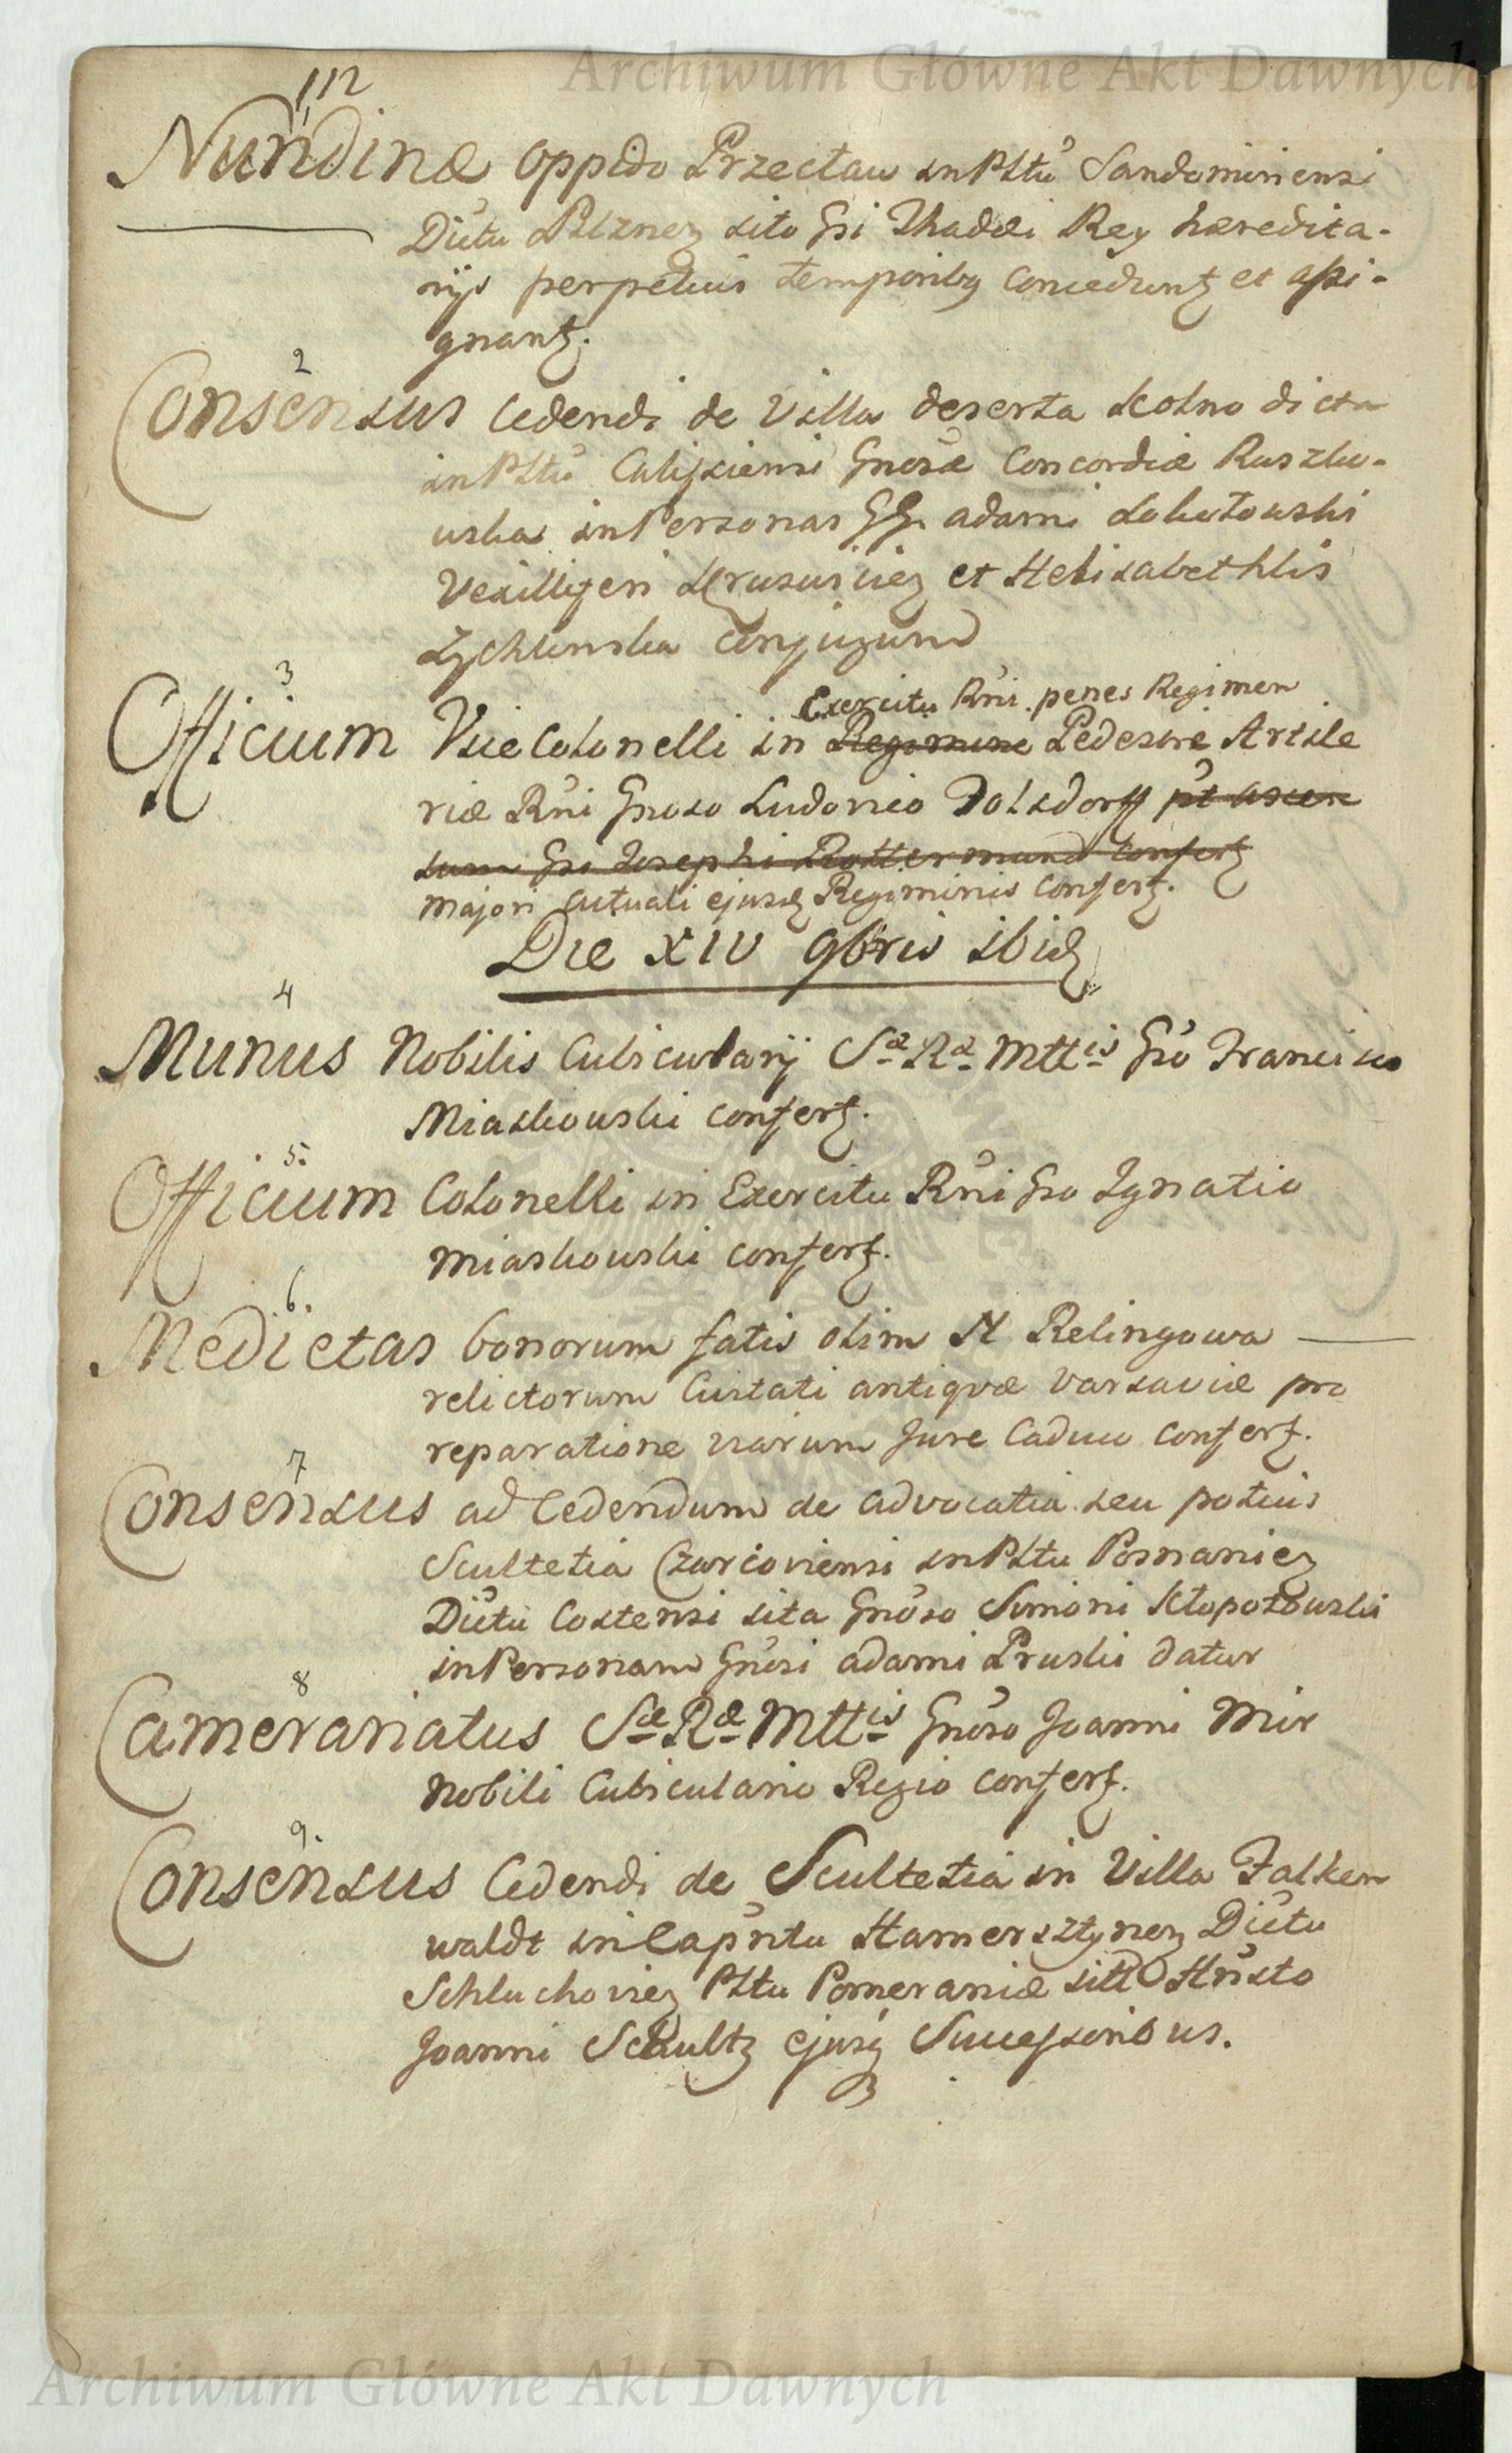 Archiwum Główne Akt Dawnych
112
1
Nundinæ oppido Przecław in Pltu Sandomiriensi
Dictu Pilznez sito Gsi Thadæi Rey hæredita-
rijs perpetuis temporibg conceduntz et assi-
gnantz.
2
Consensus Cedendi de Villa deserta Kolno dicta
in Pltu Calissiensi Gnosæ Concordiæ Raszko-
wska in Personas GG. adami
Vexilligeri Kruswiciez et Helisabethlis
Zychlinska Conjugum
3
Exercitu Rni. penes Regimen
Officium ViceColonelli in Regimine Pedestre Artile
riæ Rni Gnoso Ludovico Dolsdorff pt ascen
sum Gso Josephi Rottermund confertz
majori actuali ejusdz Regiminis confertz.
Die XIV 9bris ibidz
4
Munus Nobilis Cubicularij Sæ Ræ Mttis Gso Francisco
Miaskowski confertz.
5.
Officium Colonelli in Exercitu Rni Gso Ignatio
Miaskowski confertz.
6.
Medietas bonorum fatis olim N Relingowa
relictorum Civitati antiqvæ Varsaviæ pro
reparatione viarum Jure Caduco confertz.
7
Consensus ad Cedendum de advocatia seu potius
Scultetia Czarcoviensi in Pltu Posnaniez
Dictu Costensi sita Gnoso Simoni Kłopotowski
in Personam Gnosi adami Pruski datur
8
Camerariatus Sæ Ræ Mttis Gnoso Joanni Mier
Nobili Cubiculario Regio confertz.
9.
Consensus Cedendi de Scultetia in Villa Falken
waldt in Capntu Hamersztynez Dictu
Schluchoviez Pltu Pomeraniæ sitto Hnsto
Joanni Schultz ejusq Successoribus.
Archiwum Główne Akt Dawnych